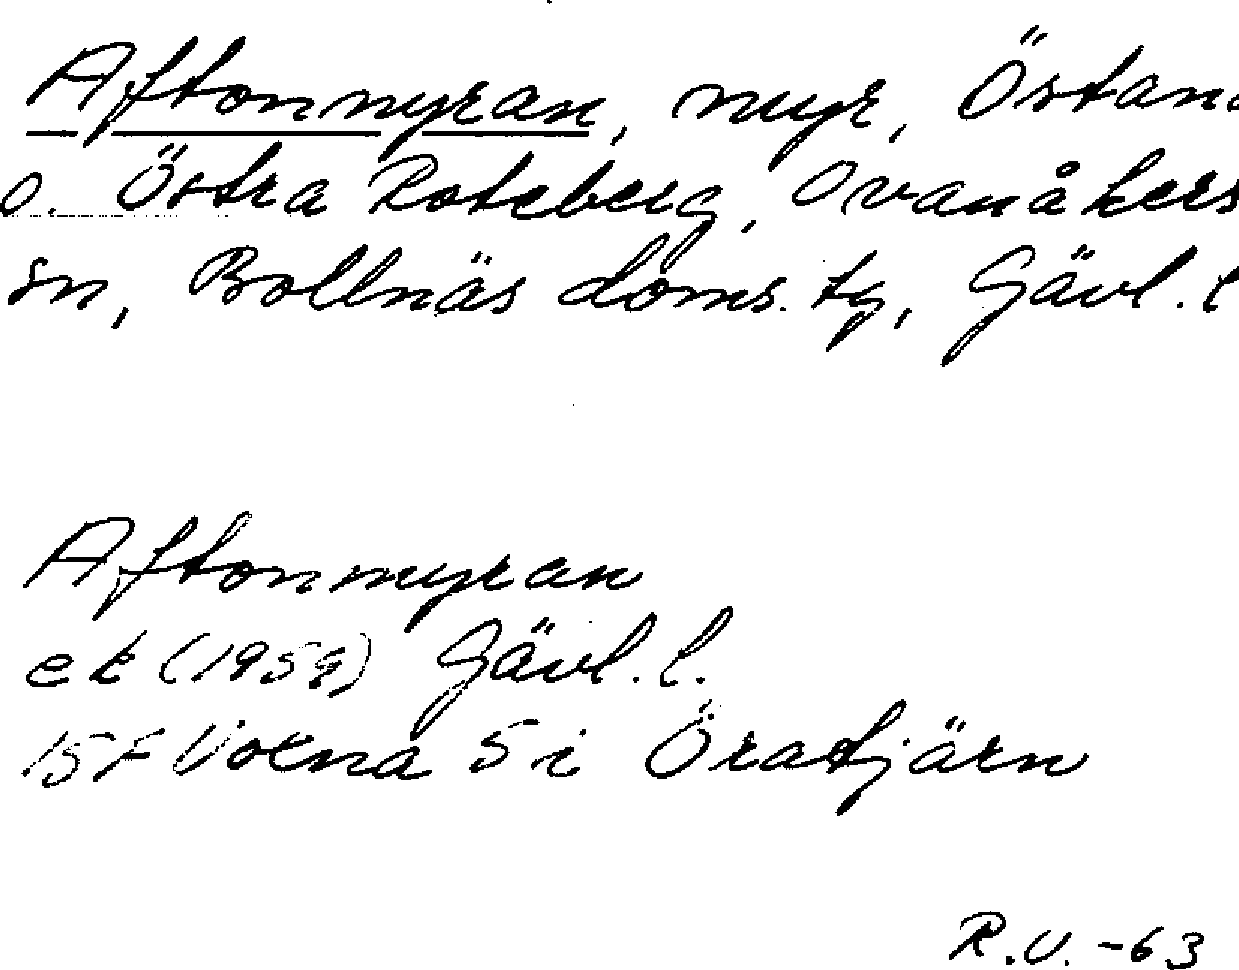 Aftonmyran, myr, Östanå
o. Östra Roteberg, Ovanåkers
sn, Bollnäs doms. tg, Gävl. l
Aftonmyran
ek (1959) Gävl. l.
15F Voxna 5 i Öratjärn
R.U. -63